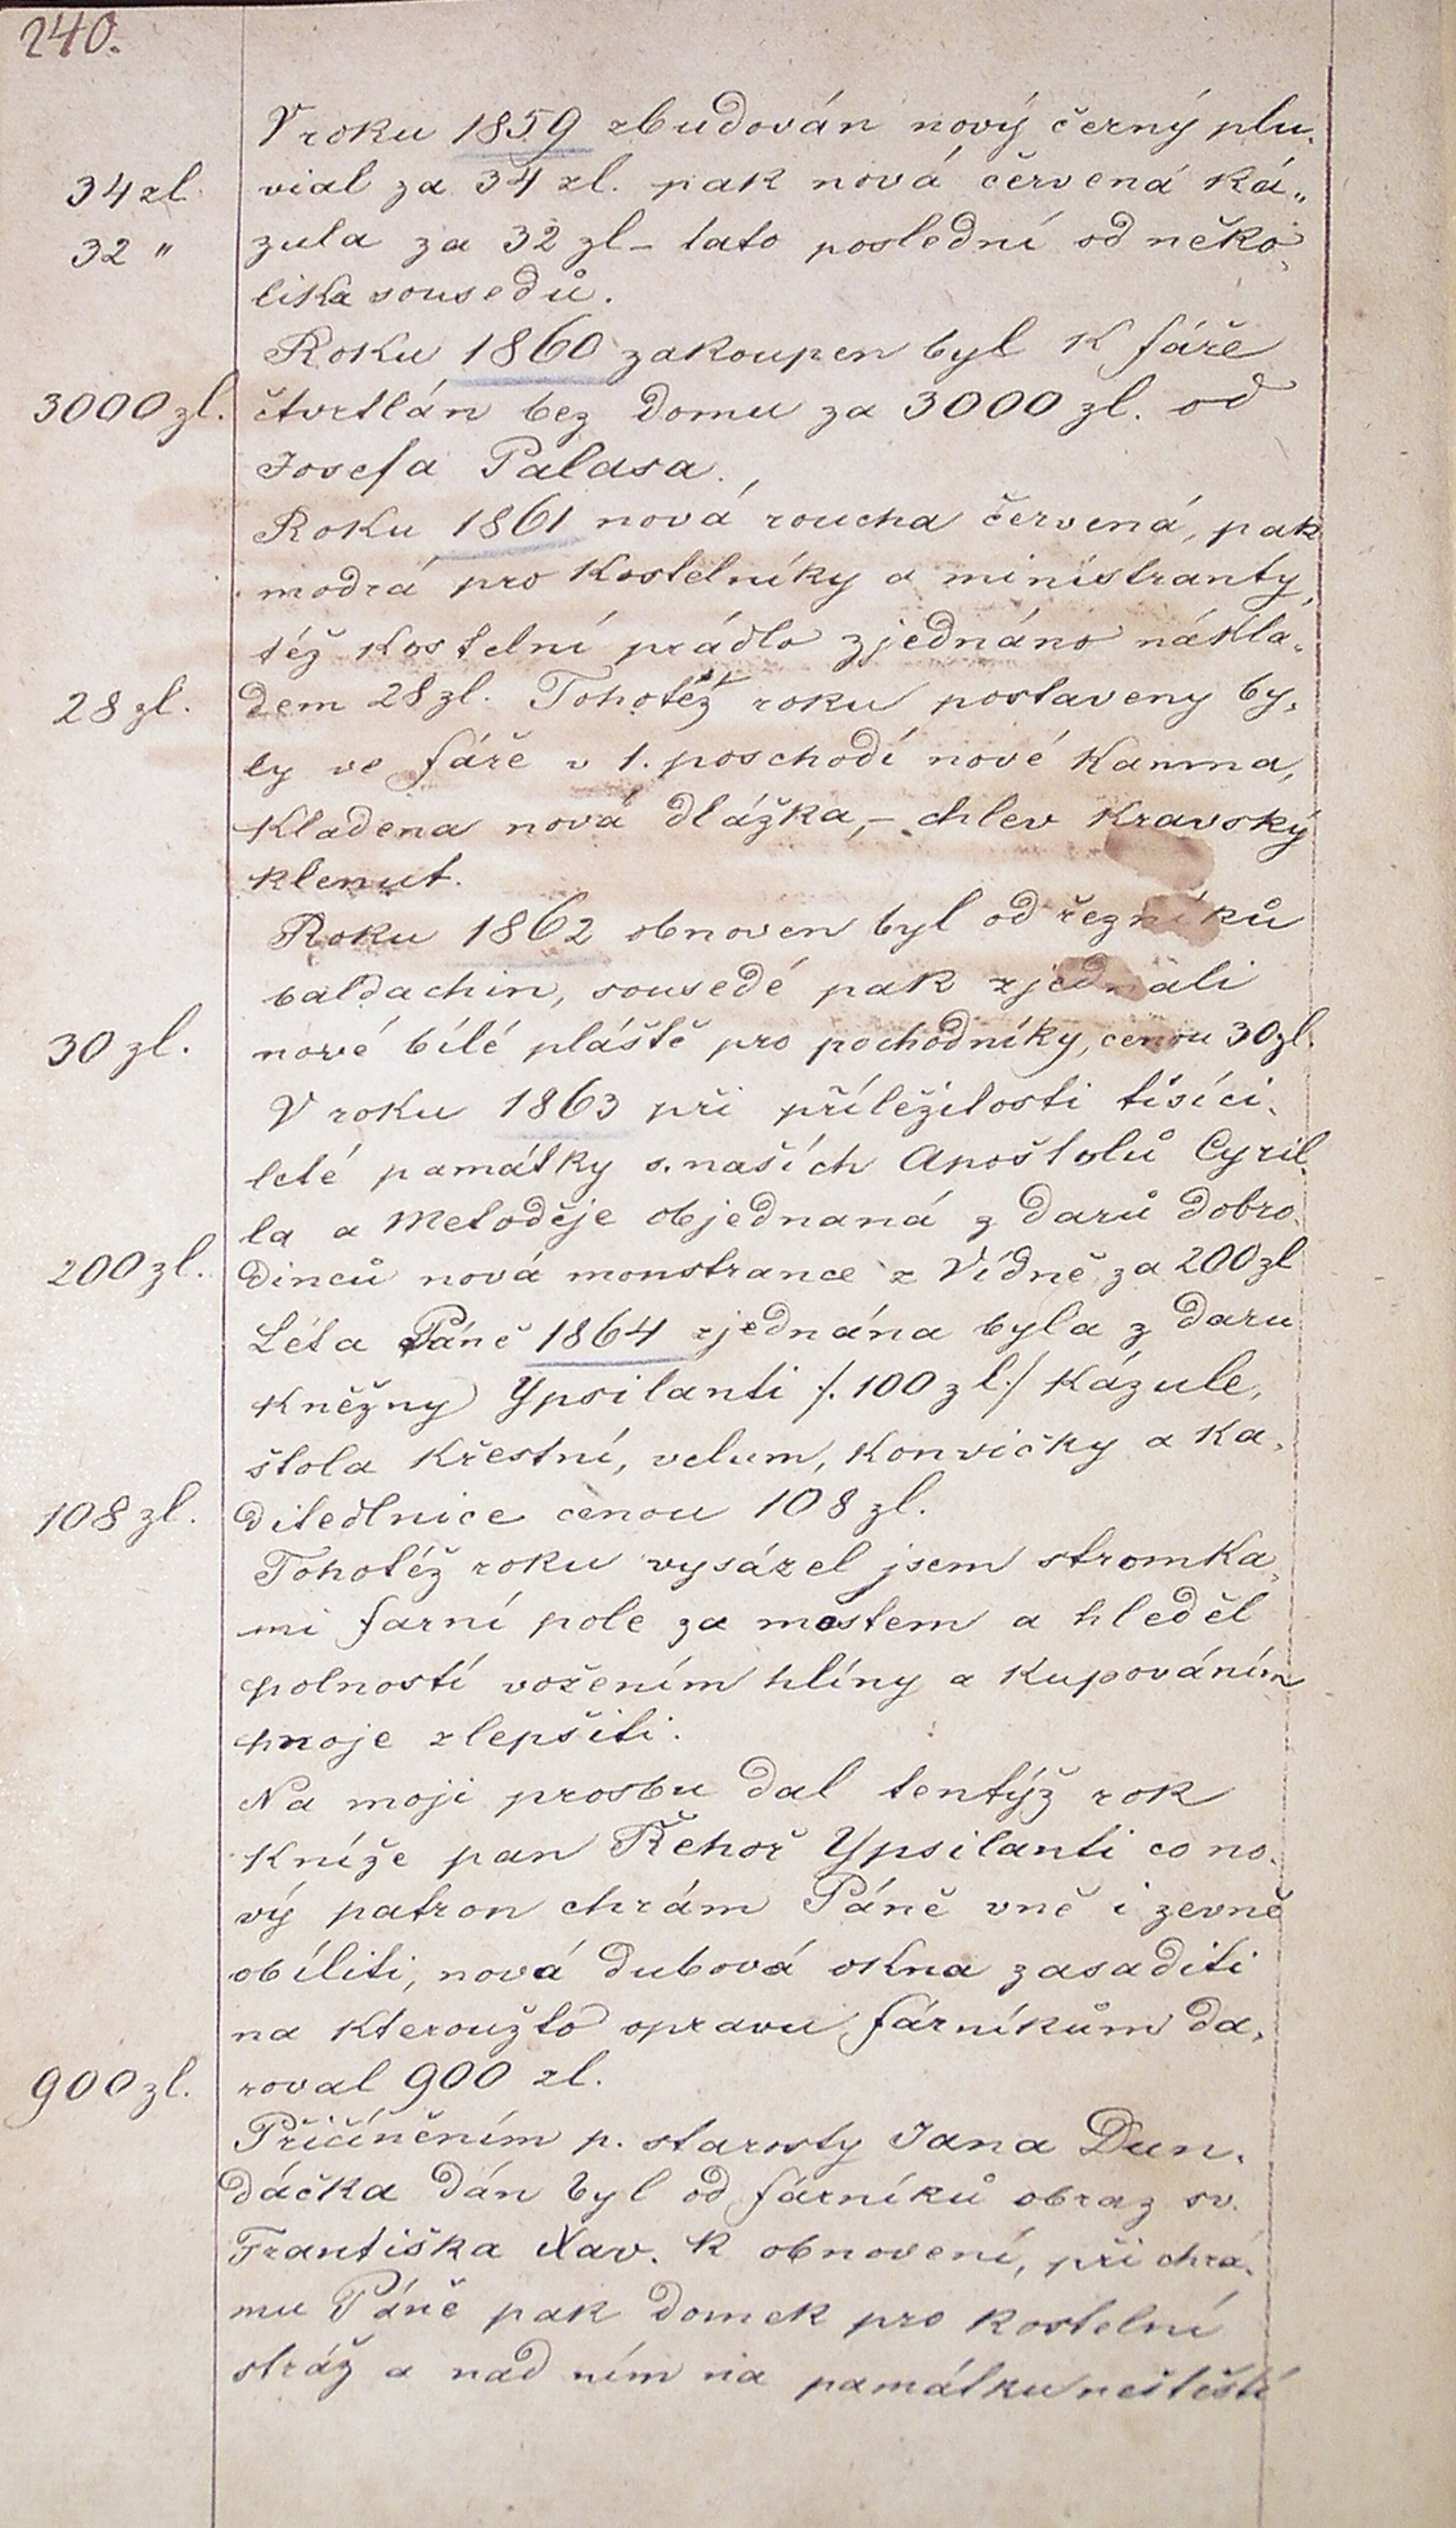 240.
V roku 1859 zbudován nový černý plu„
34 zl. vial za 34 zl. pak nová červená ká„
32 " zula za 32 zl – tato poslední od něko„
lika sousedů.
Roku 1860 zakoupen byl k fáře
3000 zl. čtvrtlán bez domu za 3000 zl. od
Josefa Palasa.
Roku 1861 nová roucha červená, pak
modrá pro kostelníky a ministranty,
též kostelní prádlo zjednáno nákla„
28 zl. dem 28 zl. Tohotéž roku postaveny by„
ly ve fáře v 1. poschodí nové kamna,
kladena nová dlážka, – chlev kravský
klenut.
Roku 1862 obnoven byl od řezníků
baldachin, sousedé pak zjednali
30 zl. nové bílé pláště pro pochodníky, cenou 30 zl.
V roku 1863 při příležitosti tisíci„
leté památky s. našich Apoštolů Cyril„
la a Metoděje objednaná z darů dobro„
200 zl. dinců nová monstrance z Vídně za 200 zl
Léta Páně 1864 zjednána byla z daru
kněžny Ypsilanti /. 100 zl./ kázule,
štola křestní, velum, konvičky a ka„
108 zl. ditedlnice cenou 108 zl.
Tohotéž roku vysázel jsem stromka„
mi farní pole za mostem a hleděl
polností vožením hlíny a kupováním
hnoje zlepšiti.
Na moji prosbu dal tentýž rok
kníže pan Řehoř Ypsilanti co no„
vý patron chrám Páně vně i zevně
obíliti, nová dubová okna zasaditi
na kteroužto opravu fárníkům da„
900 zl. roval 900 zl.
Přičíněním p. starosty Jana Dun„
dáčka dán byl od fárníků obraz sv.
Františka Xav. k obnovení, při chrá„
mu Páně pak domek pro kostelní
stráž a nad ním na památku neštěstí